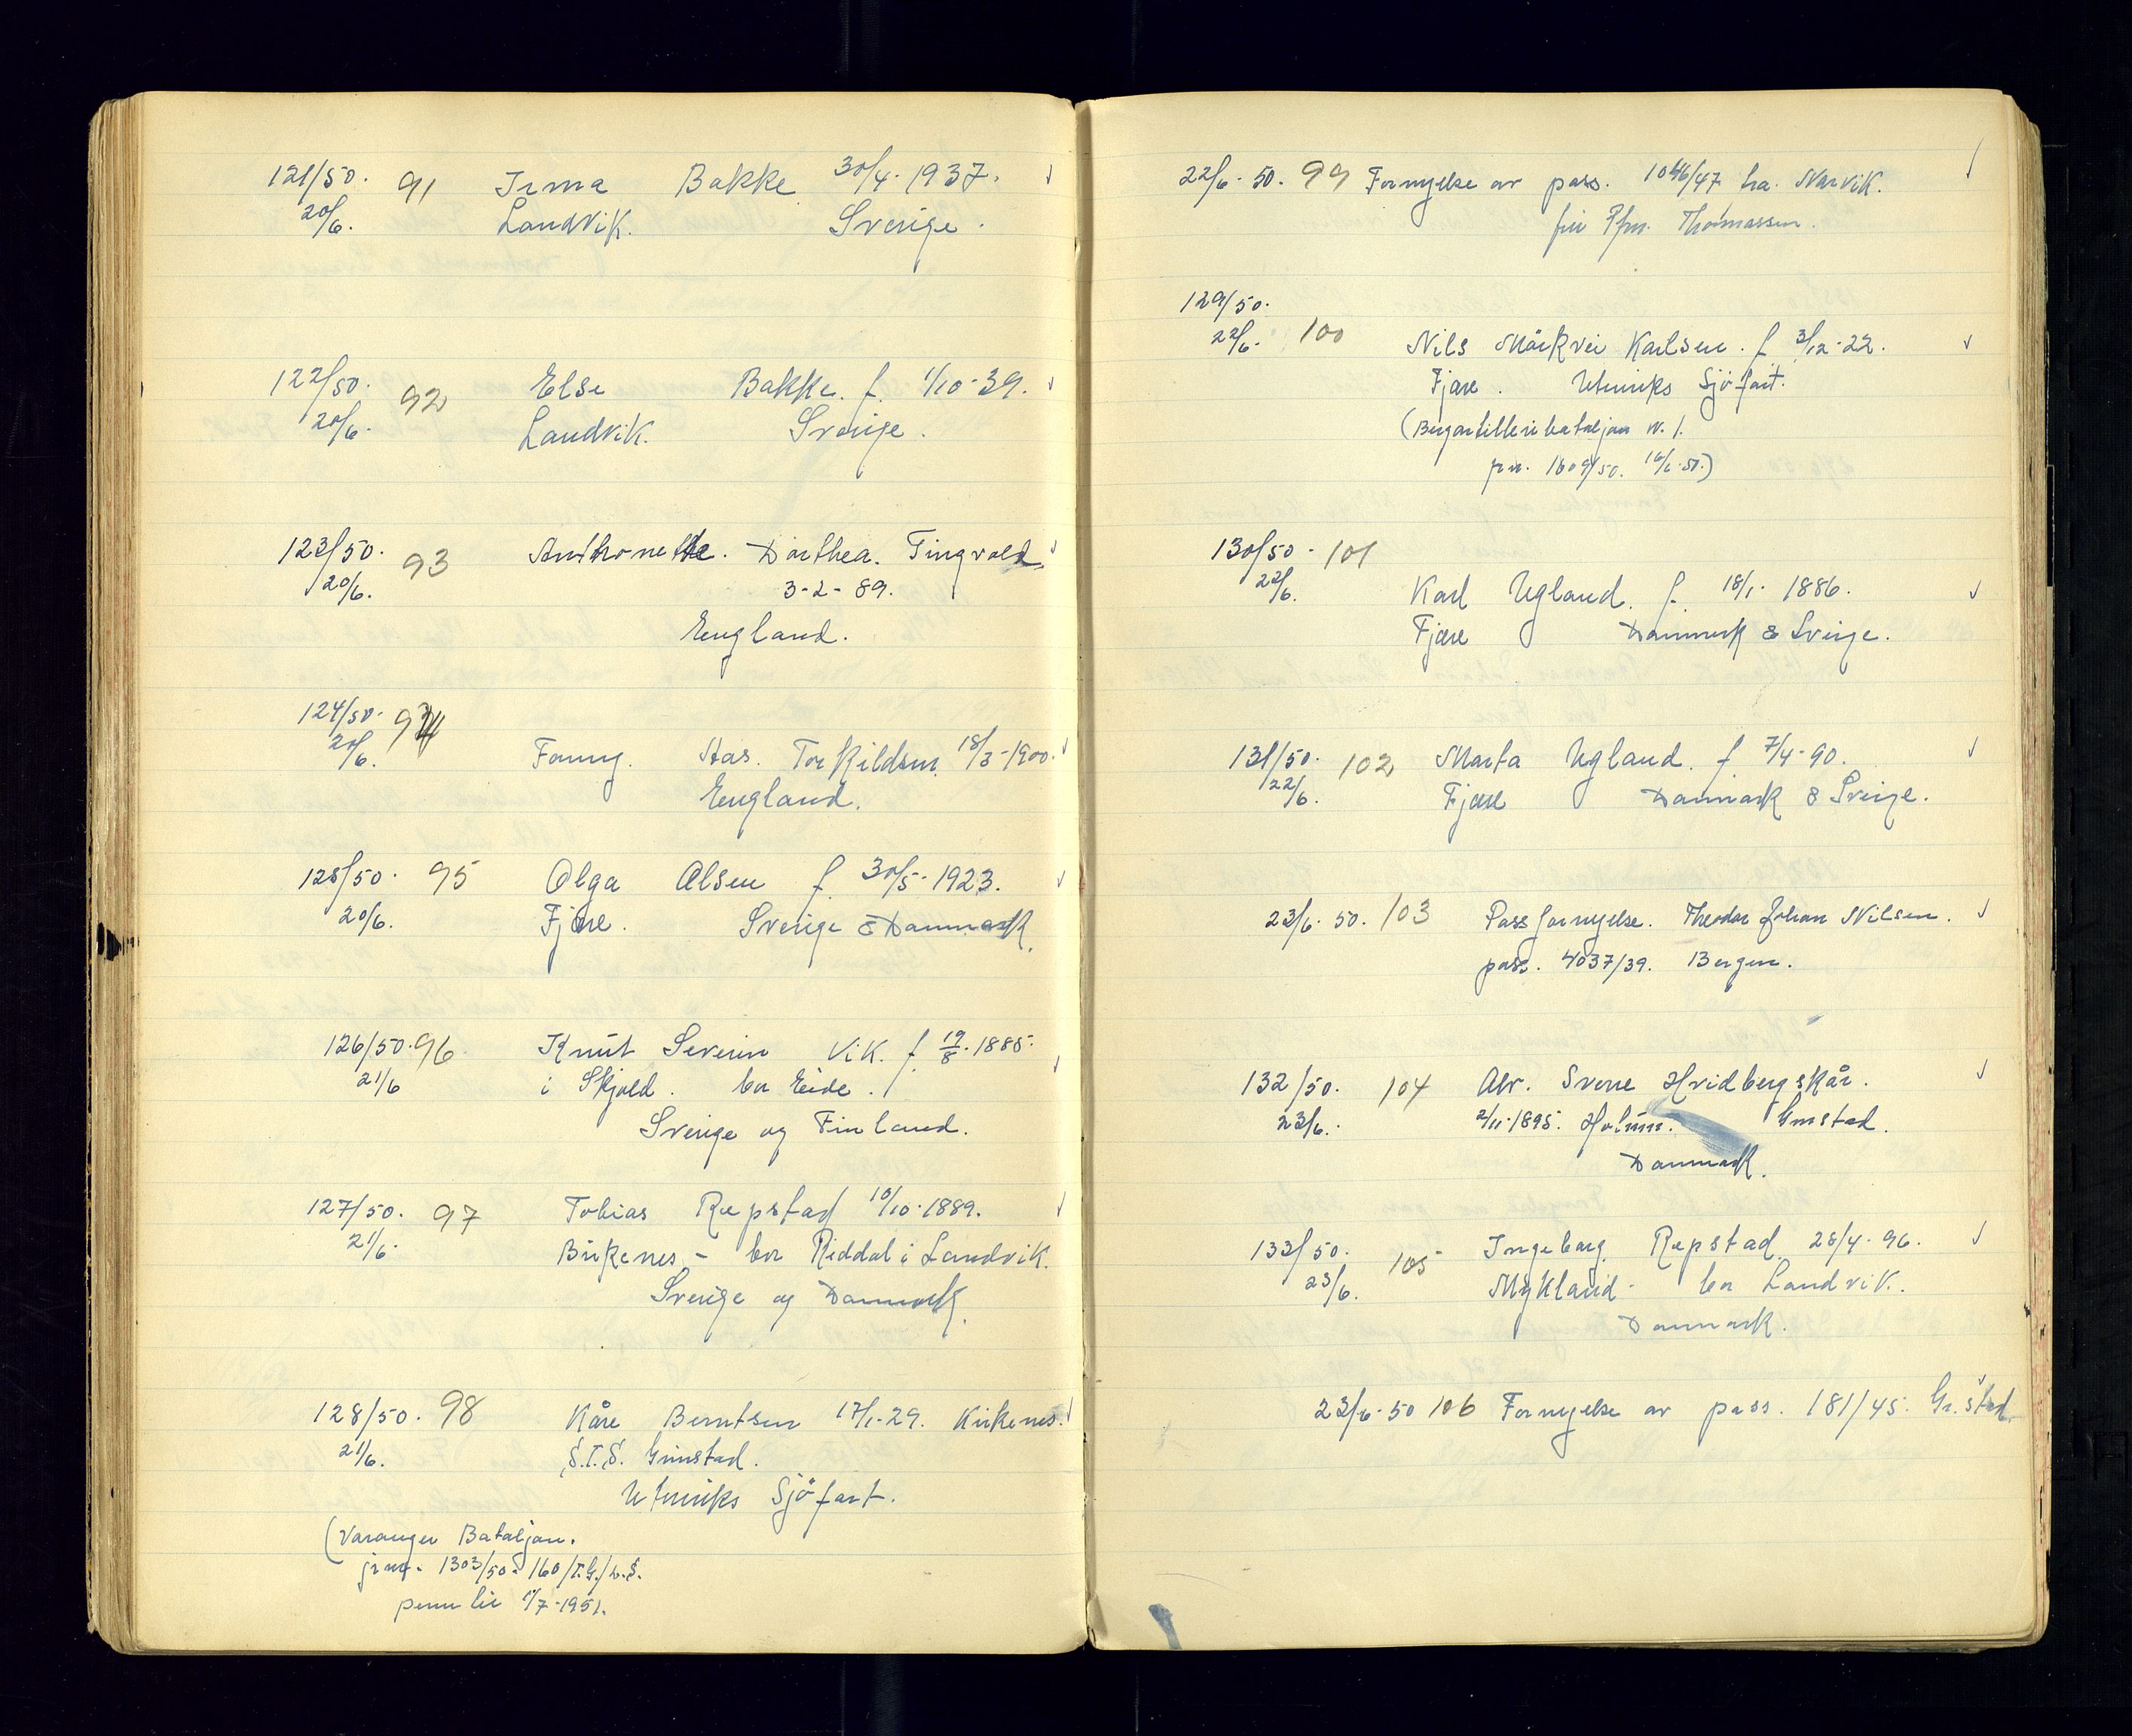 121/50. 91 Irma Bakke 30/4-1937.
20/6. Landvik. Sverige.
122/50. 92 Else Bakke. f. 1/10-39.
20/6. Landvik. Sverige.
123/50. 93 Anthonette. Dorthea. Tingvold.
20/6. 3-2-89.
England.
124/50. 94
20/6. Fanny. Aas. Torkildsen. 18/3-1900.
England.
125/50. 95 Olga Olsen f 30/5-1923.
20/6. Fjære. Sverige & Danmark.
126/50. 96 Knut Severin Vik. f. 19/8-1885.
21/6 i Skjold. bor Eide.
Sverige og Finland.
127/50. 97 Tobias Repstad 10/10-1889.
21/6. Birkenes - bor Riddal i Landvik.
Sverige og Danmark.
128/50. 98 Kåre Berntsen 17/1-29. Kirkenes.
21/6. S.T.S. Grimstad.
Utenriks Sjöfart.
(Varanger Bataljon.
jrnr. 1303/50- 160/T.G./
perm til 1/7-1951.
22/6-50. 99 Fornyelse av pass. 1046/47 fra. Narvik.
for Thomassen.
129/50.
22/6. 100 Nils Markvei Karlsen. f 3/12-22.
Fjære. Utenriks Sjöfart.
(Bergartilleribataljon nr. 1.
jnr. 1609/50.
130/50- 101
22/6. Karl Ugland. f. 18/1- 1886.
Fjære Danmark & Sverige.
131/50. 102 Marta Ugland. f 7/4-90.
22/6. Fjære Danmark & Sverige.
23/6-50. 103 Passfornyelse. Theodor Johan Nilsen.
pass. 4037/39. Bergen.
132/50. 104 Alv. Sverre Hvidbergskår.
23/6. 2/11-1895. Grimstad.
Danmark.
133/50. 105 Ingeborg. Repstad. 28/4-96.
23/6. Mykland- bor Landvik.
Danmark.
23/6-50 106 Fornyelse av pass. 181/45. Gr.stad.